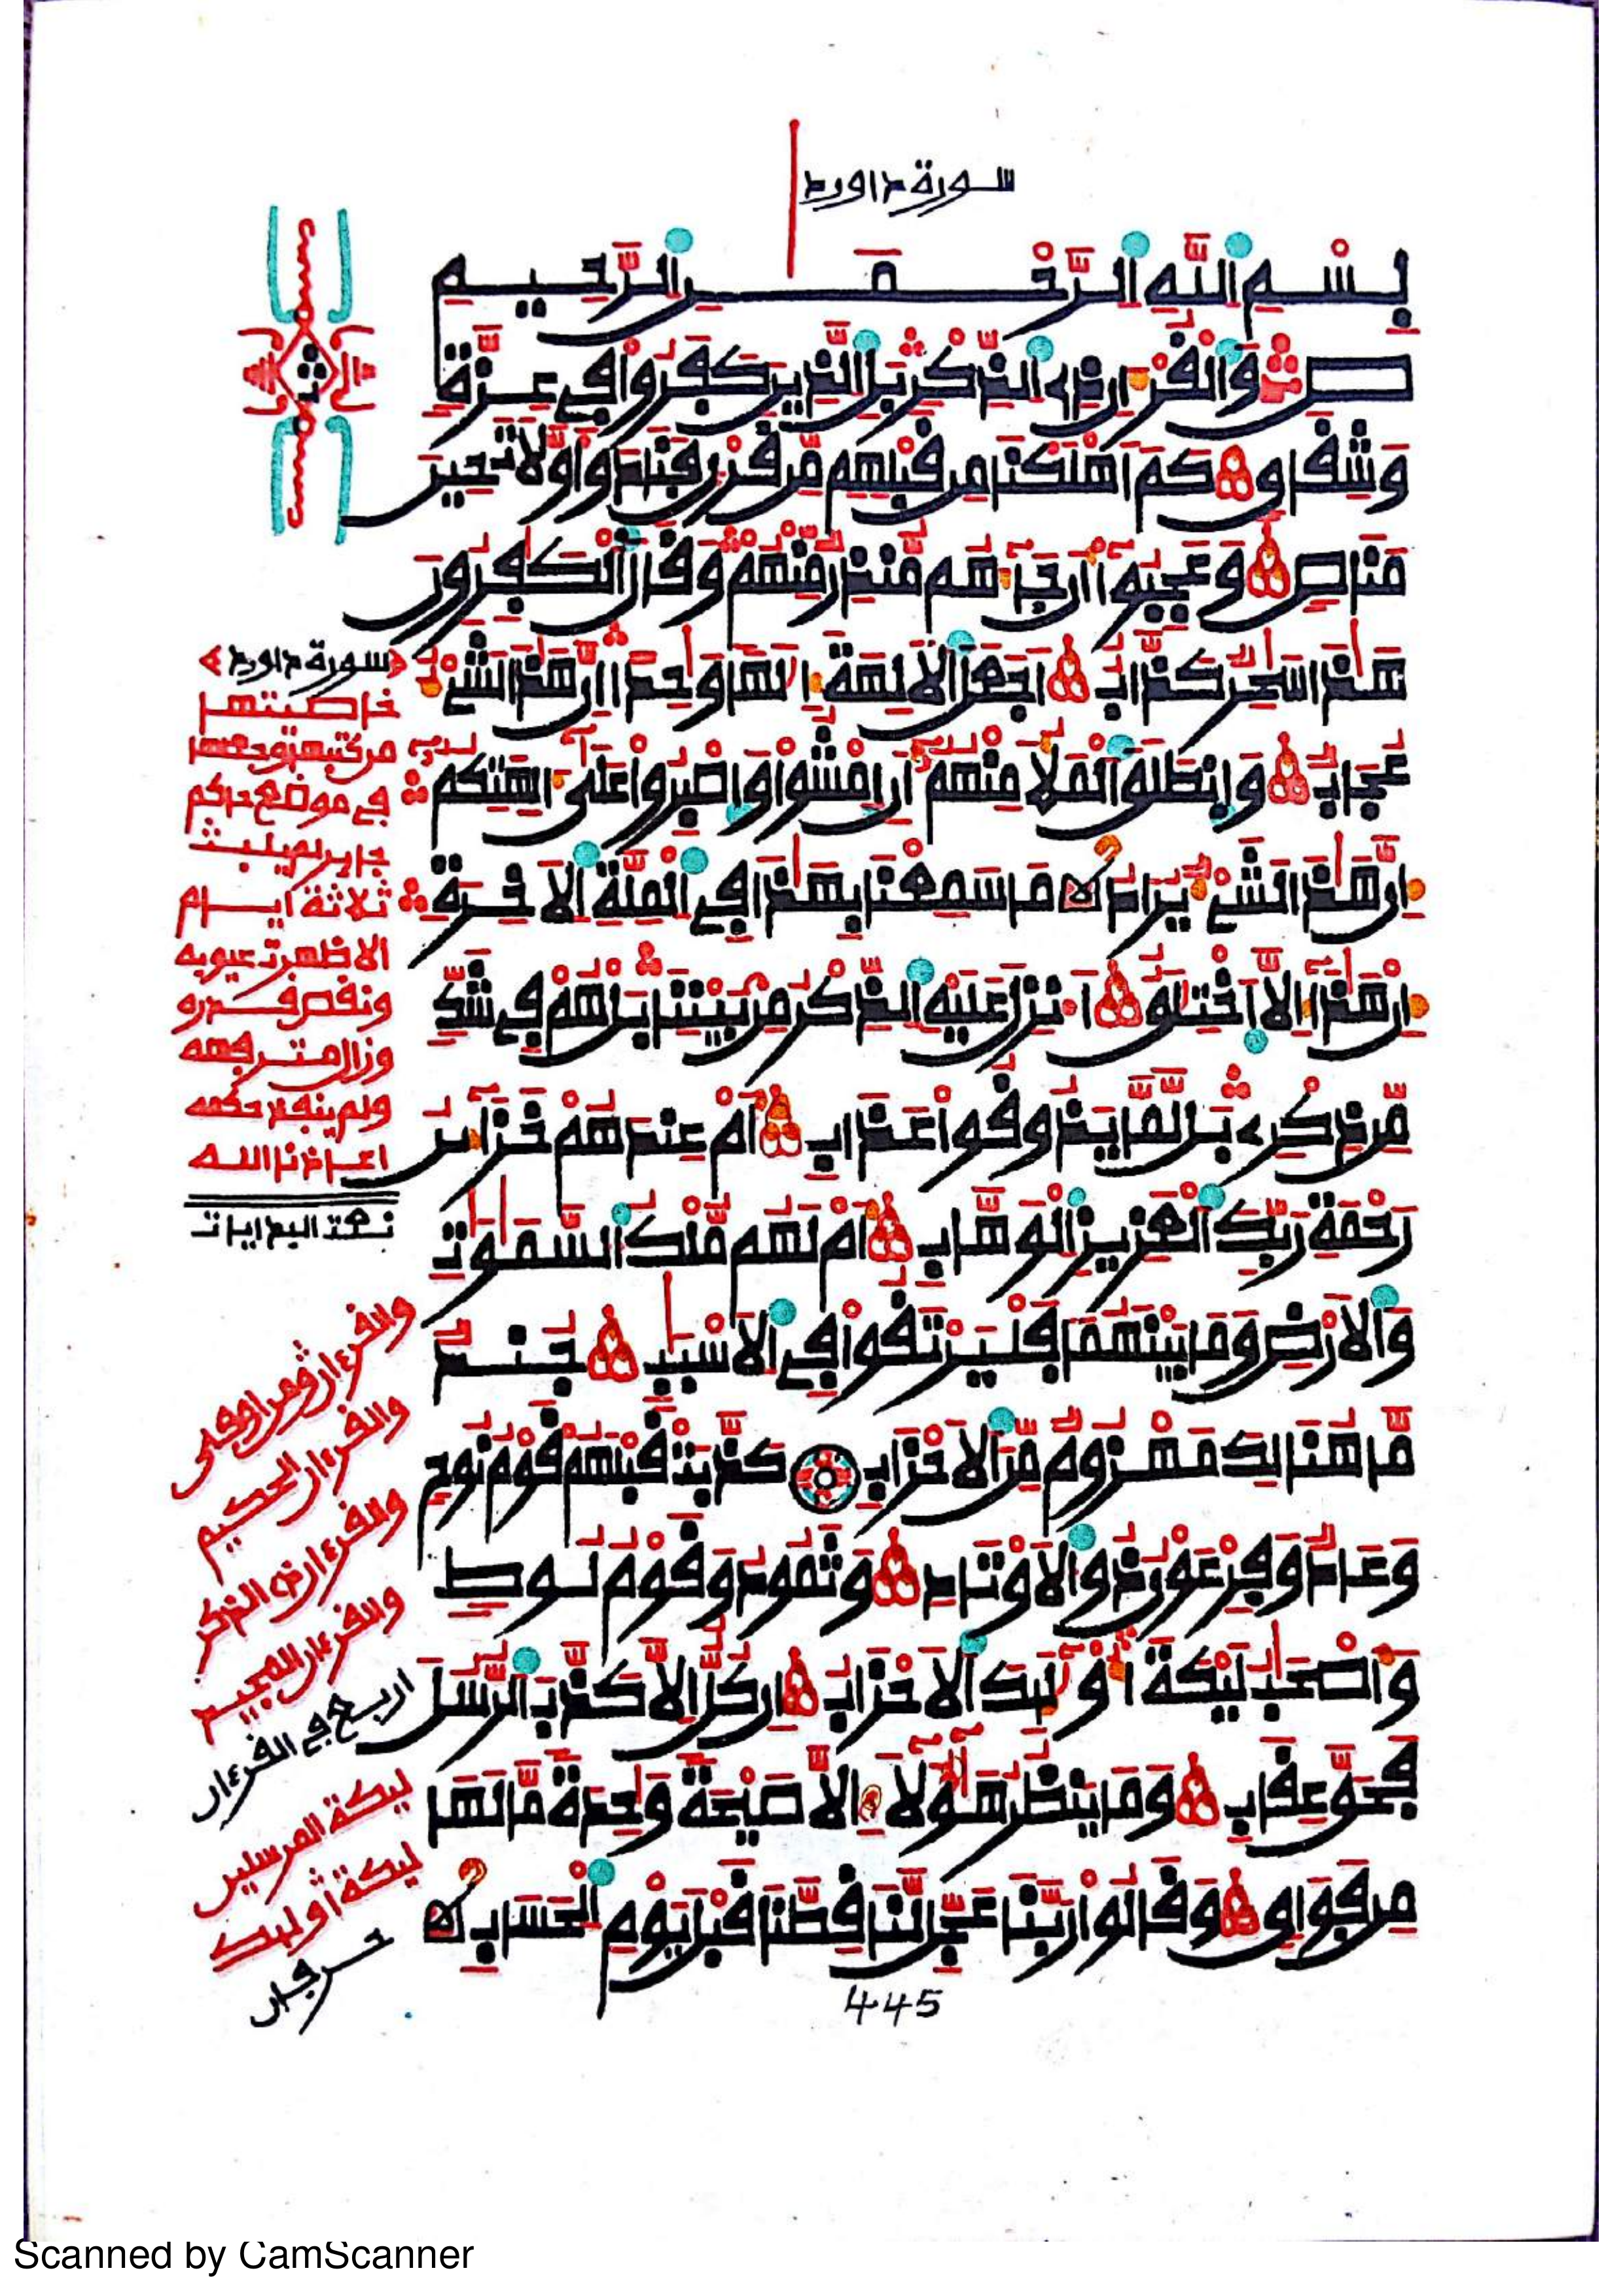 سورة داورد
بِسْمِ اللَّهِ الرَّحْمَنِ الرَّحِيمِ
صَ وَالْقُرْءَانِ ذِے الذِّكْرِ بَلِ الذِينَ كَفَرُواْ فِے عِزَّةٍ
وَشِقَاقٍ كَمَ اَهْلَكْنَا مِن قَبْلِهِم مِّن قَرْنٍ فَنَادَواْ وَّلَاتَ حِينَ
مَنَاصٍ وَعَجِبُواْ أَن جَآءَهُم مُّنذِرٌ مِّنْهُمْ وَقَالَ الْكَٰفِرُونَ
هَٰذَا سَٰحِرٌ كَذَّابٌ اَجَعَلَ الَالِهَةَ إِلَٰهاً وَٰحِداً اِنَّ هَٰذَا لَشَےْءٌ
عُجَابٌ وَانطَلَقَ الْمَلَأُ مِنْهُمُۥٓ أَنِ اِمْشُواْ وَاصْبِرُواْ عَلَىٰٓ ءَالِهَتِكُمُۥٓ
إِنَّ هَٰذَا لَشَےْءٌ يُرَادُ مَا سَمِعْنَا بِهَٰذَا فِے الْمِلَّةِ اِلَاخِرَةِ
إِنْ هَٰذَآ إِلَّا اَخْتِلَٰقٌ اَ۟نزِلَ عَلَيْهِ الذِّكْرُ مِنۢ بَيْنِنَا بَلْ هُمْ فِے شَكٍّ
مِّن ذِكْرِے بَل لَّمَّا يَذُوقُواْ عَذَابِ أَمْ عِندَهُمْ خَزَآئِنُ
رَحْمَةِ رَبِّكَ الْعَزِيزِ الْوَهَّابِ أَمْ لَهُم مُّلْكُ السَّمَٰوَٰتِ
وَالَارْضِ وَمَا بَيْنَهُمَا فَلْيَرْتَقُواْ فِے الَاسْبَٰبِ جُندٌ
مَّا هُنَالِكَ مَهْزُومٌ مِّنَ الَاحْزَابِ كَذَّبَتْ قَبْلَهُمْ قَوْمُ نُوحٍ
وَعَادٌ وَفِرْعَوْنُ ذُو الَاوْتَادِ وَثَمُودُ وَقَوْمُ لُوطٍ
وَأَصْحَٰبُ لَيْكَةَ أُوْلَٰٓئِكَ الَاحْزَابُ إِن كُلٌّ اِلَّا كَذَّبَ الرُّسُلَ
فَحَقَّ عِقَابِ وَمَا يَنظُرُ هَٰٓؤُلَآءِ اِلَّا صَيْحَةً وَٰحِدَةً مَّا لَهَا
مِن فَوَاقٍ وَقَالُواْ رَبَّنَا عَجِّل لَّنَا قِطَّنَا قَبْلَ يَوْمِ الْحِسَابِ
445
سورة داورد
خاصيتها
من كتبها وجعلها
في موضع حاكم
جاير لم يلبث
ثلاثة أيام
الا ظهرت عيوبه
ونقص قدره
وزال
ولم ينفذ حكمه
اعاذنا الله
والقرءان
والقرءان الحكيم
والقرءان ذي الذكر
والقرءان المجيد
اربع في القرءان
ليكة المرسلين
ليكة أولئك
حرفان
Scanned by CamScanner